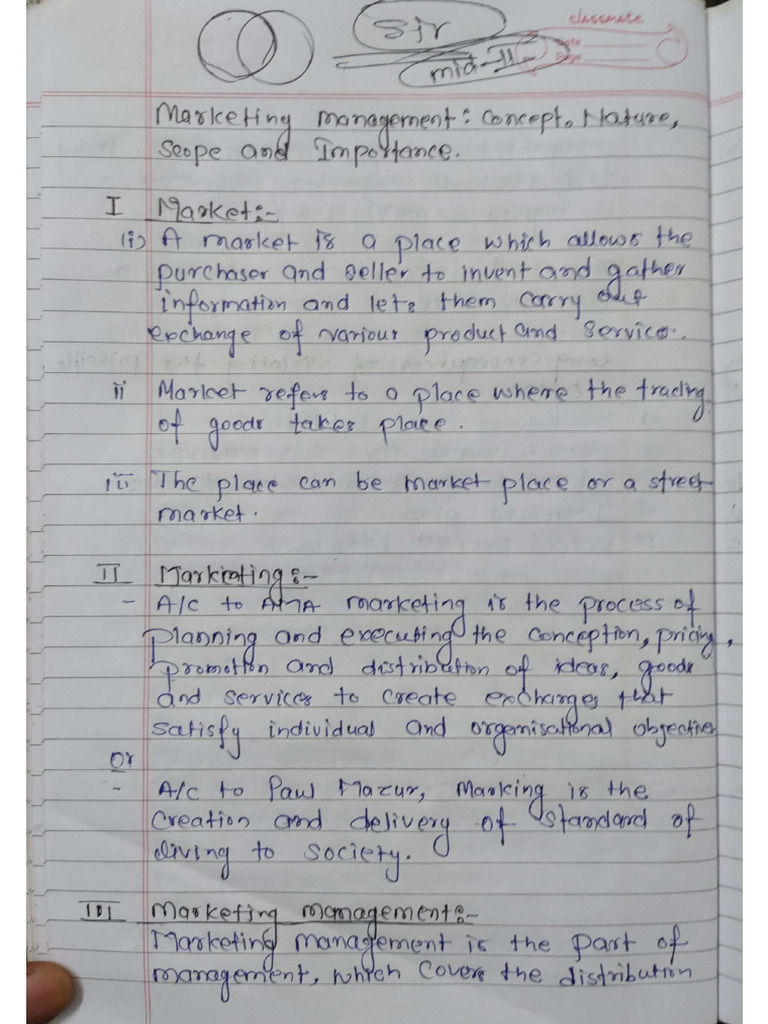 Sir
classmate
Date
Page
mid-II
Marketing management: Concept, Nature,
Scope and Importance.
I Market:-
(i) A market is a place which allows the
purchaser and seller to invent and gather
information and lets them carry out
exchange of various product and services.
ii Market refers to a place where the trading
of goods takes place.
iii The place can be market place or a street
market.
II Marketing:-
- A/C to AMA marketing is the process of
planning and executing the conception, pricing,
promotion and distribution of ideas, goods
and services to create exchanges that
satisfy individual and organisational objectives
Or
- A/c to Paul Mazur, Marking is the
Creation and delivery of standard of
living to society.
III Marketing management:-
Marketing management is the part of
management, which covers the distribution